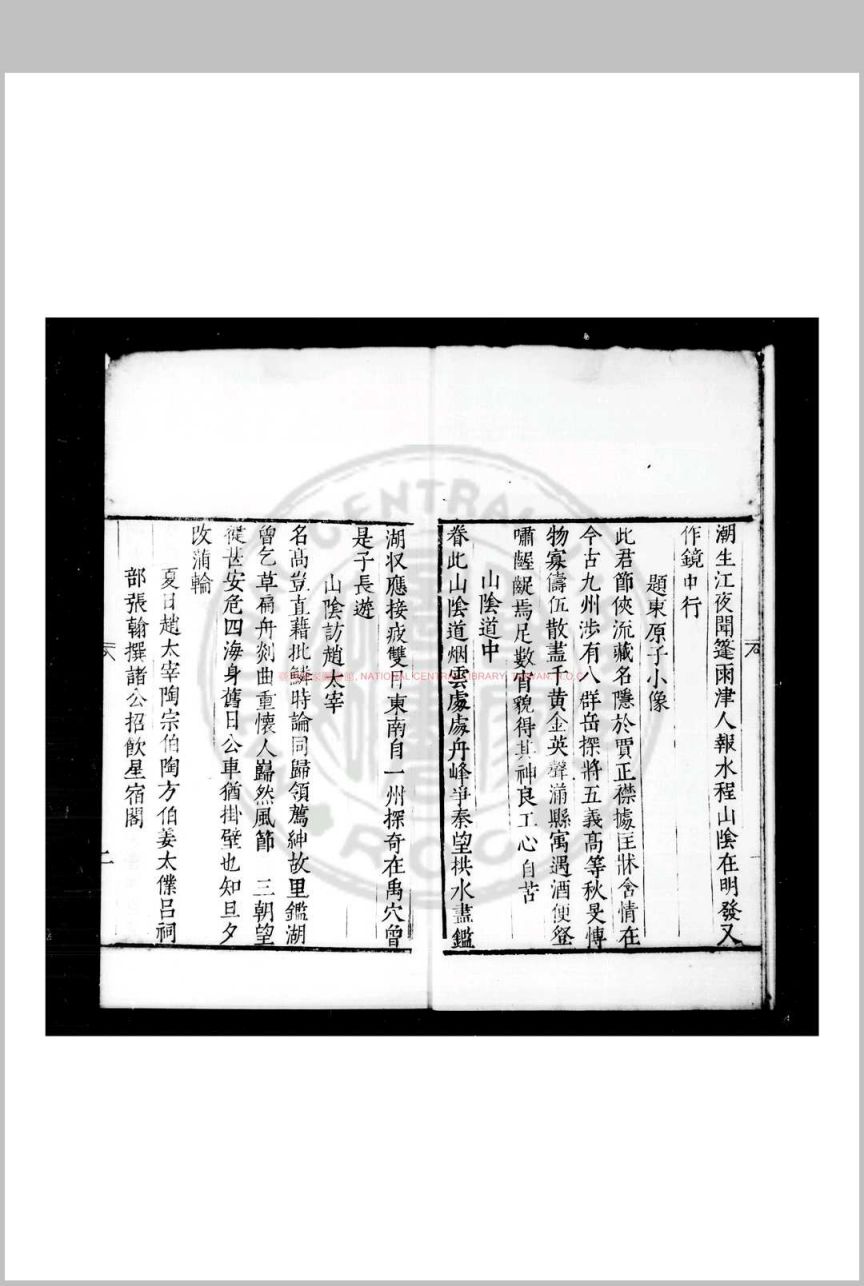 潮生江夜聞篷雨津人報水程山陰在明發又
作鏡中行
題東原子小像
此君節俠流藏名隱於賈正襟據匡牀含情在
今古九州涉有八群岳探將五義高等秋旻慱
物寡儔伍散盡千黄金英聲滿縣寓遇酒便登
嘯齷齪焉足數肯貌得其神良工心自苦
山陰道中
眷此山陰道烟雲處處丹峰爭秦望拱水盡鑑
湖収應接疲雙目東南自一州探奇在禹穴曾
是子長遊
山陰訪趙太宰
名高豈直藉批鱗時論同歸領薦紳故里鑑湖
曾乞草扁舟剡曲重懷人巋然風節 三朝望
從甚安危四海身舊日公車猶掛壁也知旦夕
改蒲輪
夏日趙太宰陶宗伯陶方伯姜太僕吕祠
部張翰撰諸公招飲星宿閣
二
NATIONAL CENTRAL LIBRARY, TAIWAN, R.O.C
CENTRAL
ROC